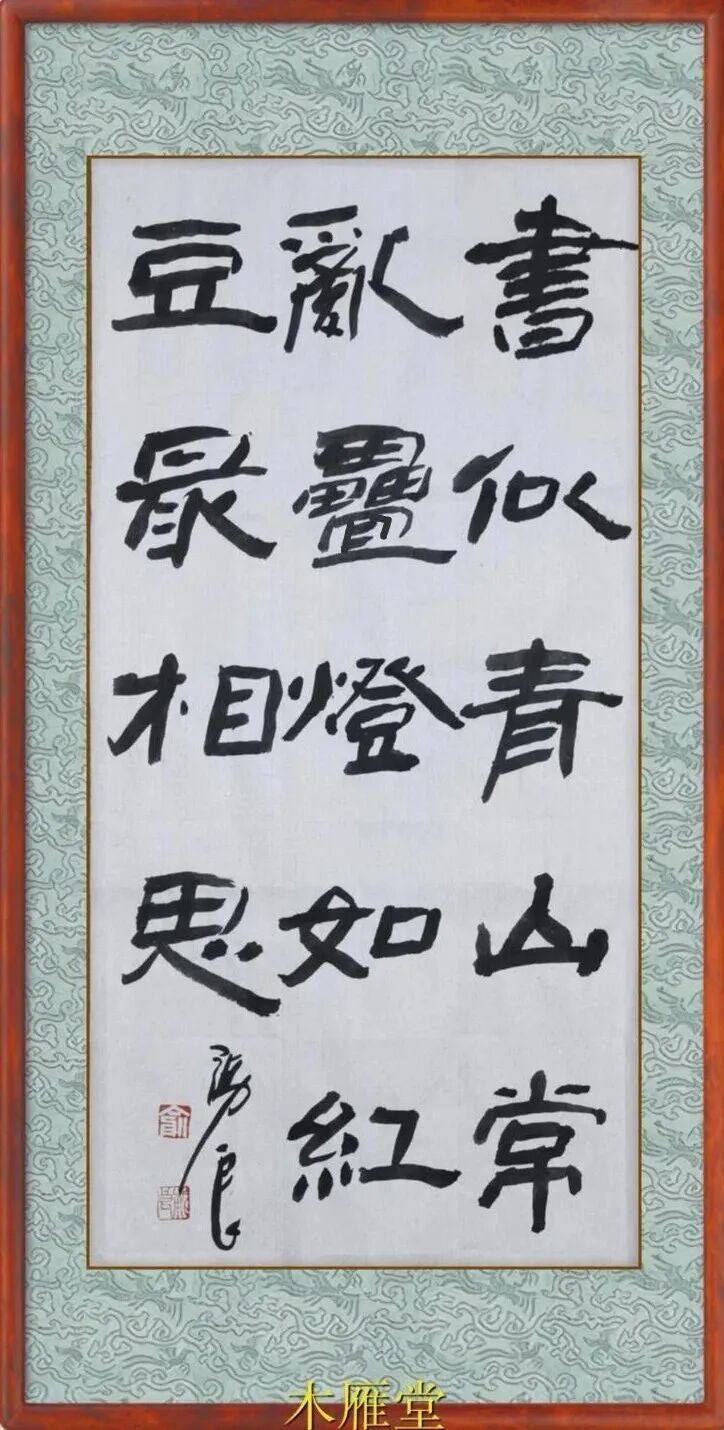 書似青山常
亂疊燈如紅
豆最相思
木雁堂